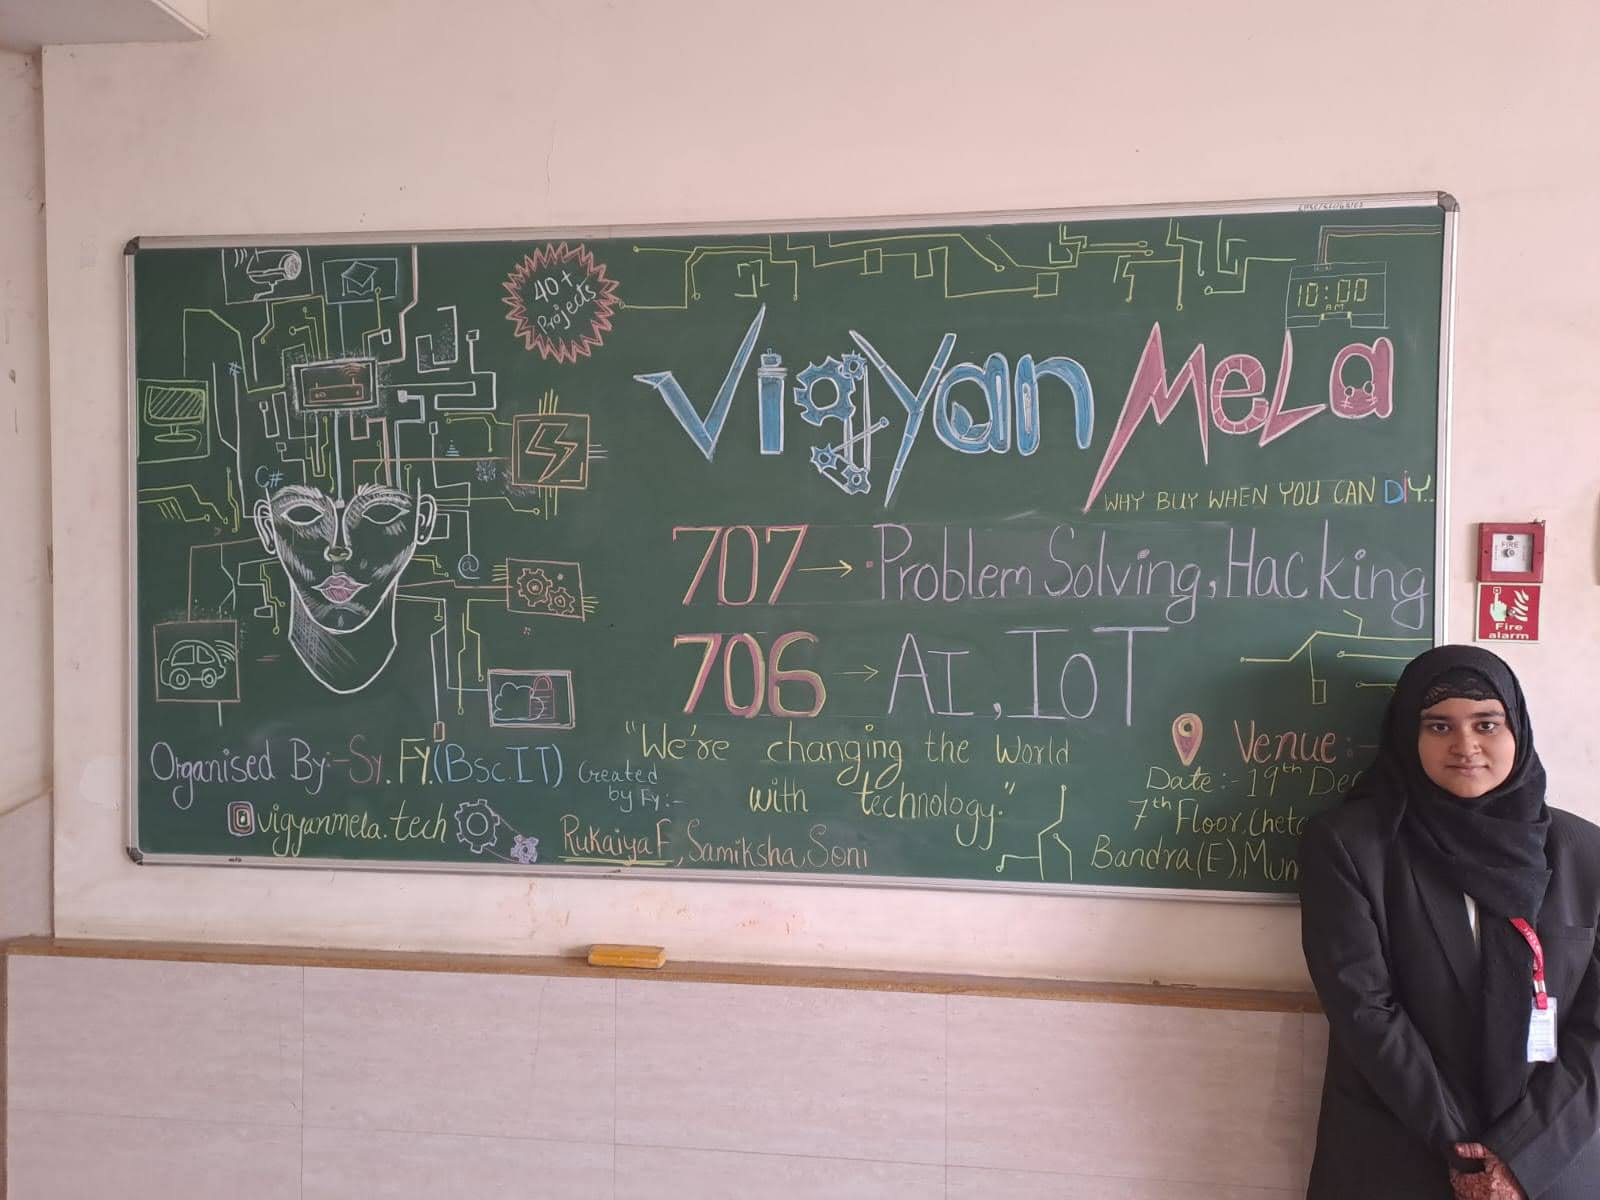 40+
Projects
10:00
AM
Vigyan Mela
WHY BUY WHEN YOU CAN DiY..
C#
#
@
707 → Problem Solving, Hacking
706 → AI, IoT
"We're changing the World
with technology."
Organised By:- Sy. Fy. (Bsc.IT)
Created
by Fy:-
Rukaiya F, Samiksha, Soni
vigyanmela.tech
Venue:-
Date:- 19th Dec
7th Floor, Cheta
Bandra(E), Mum
FIRE
Fire
alarm